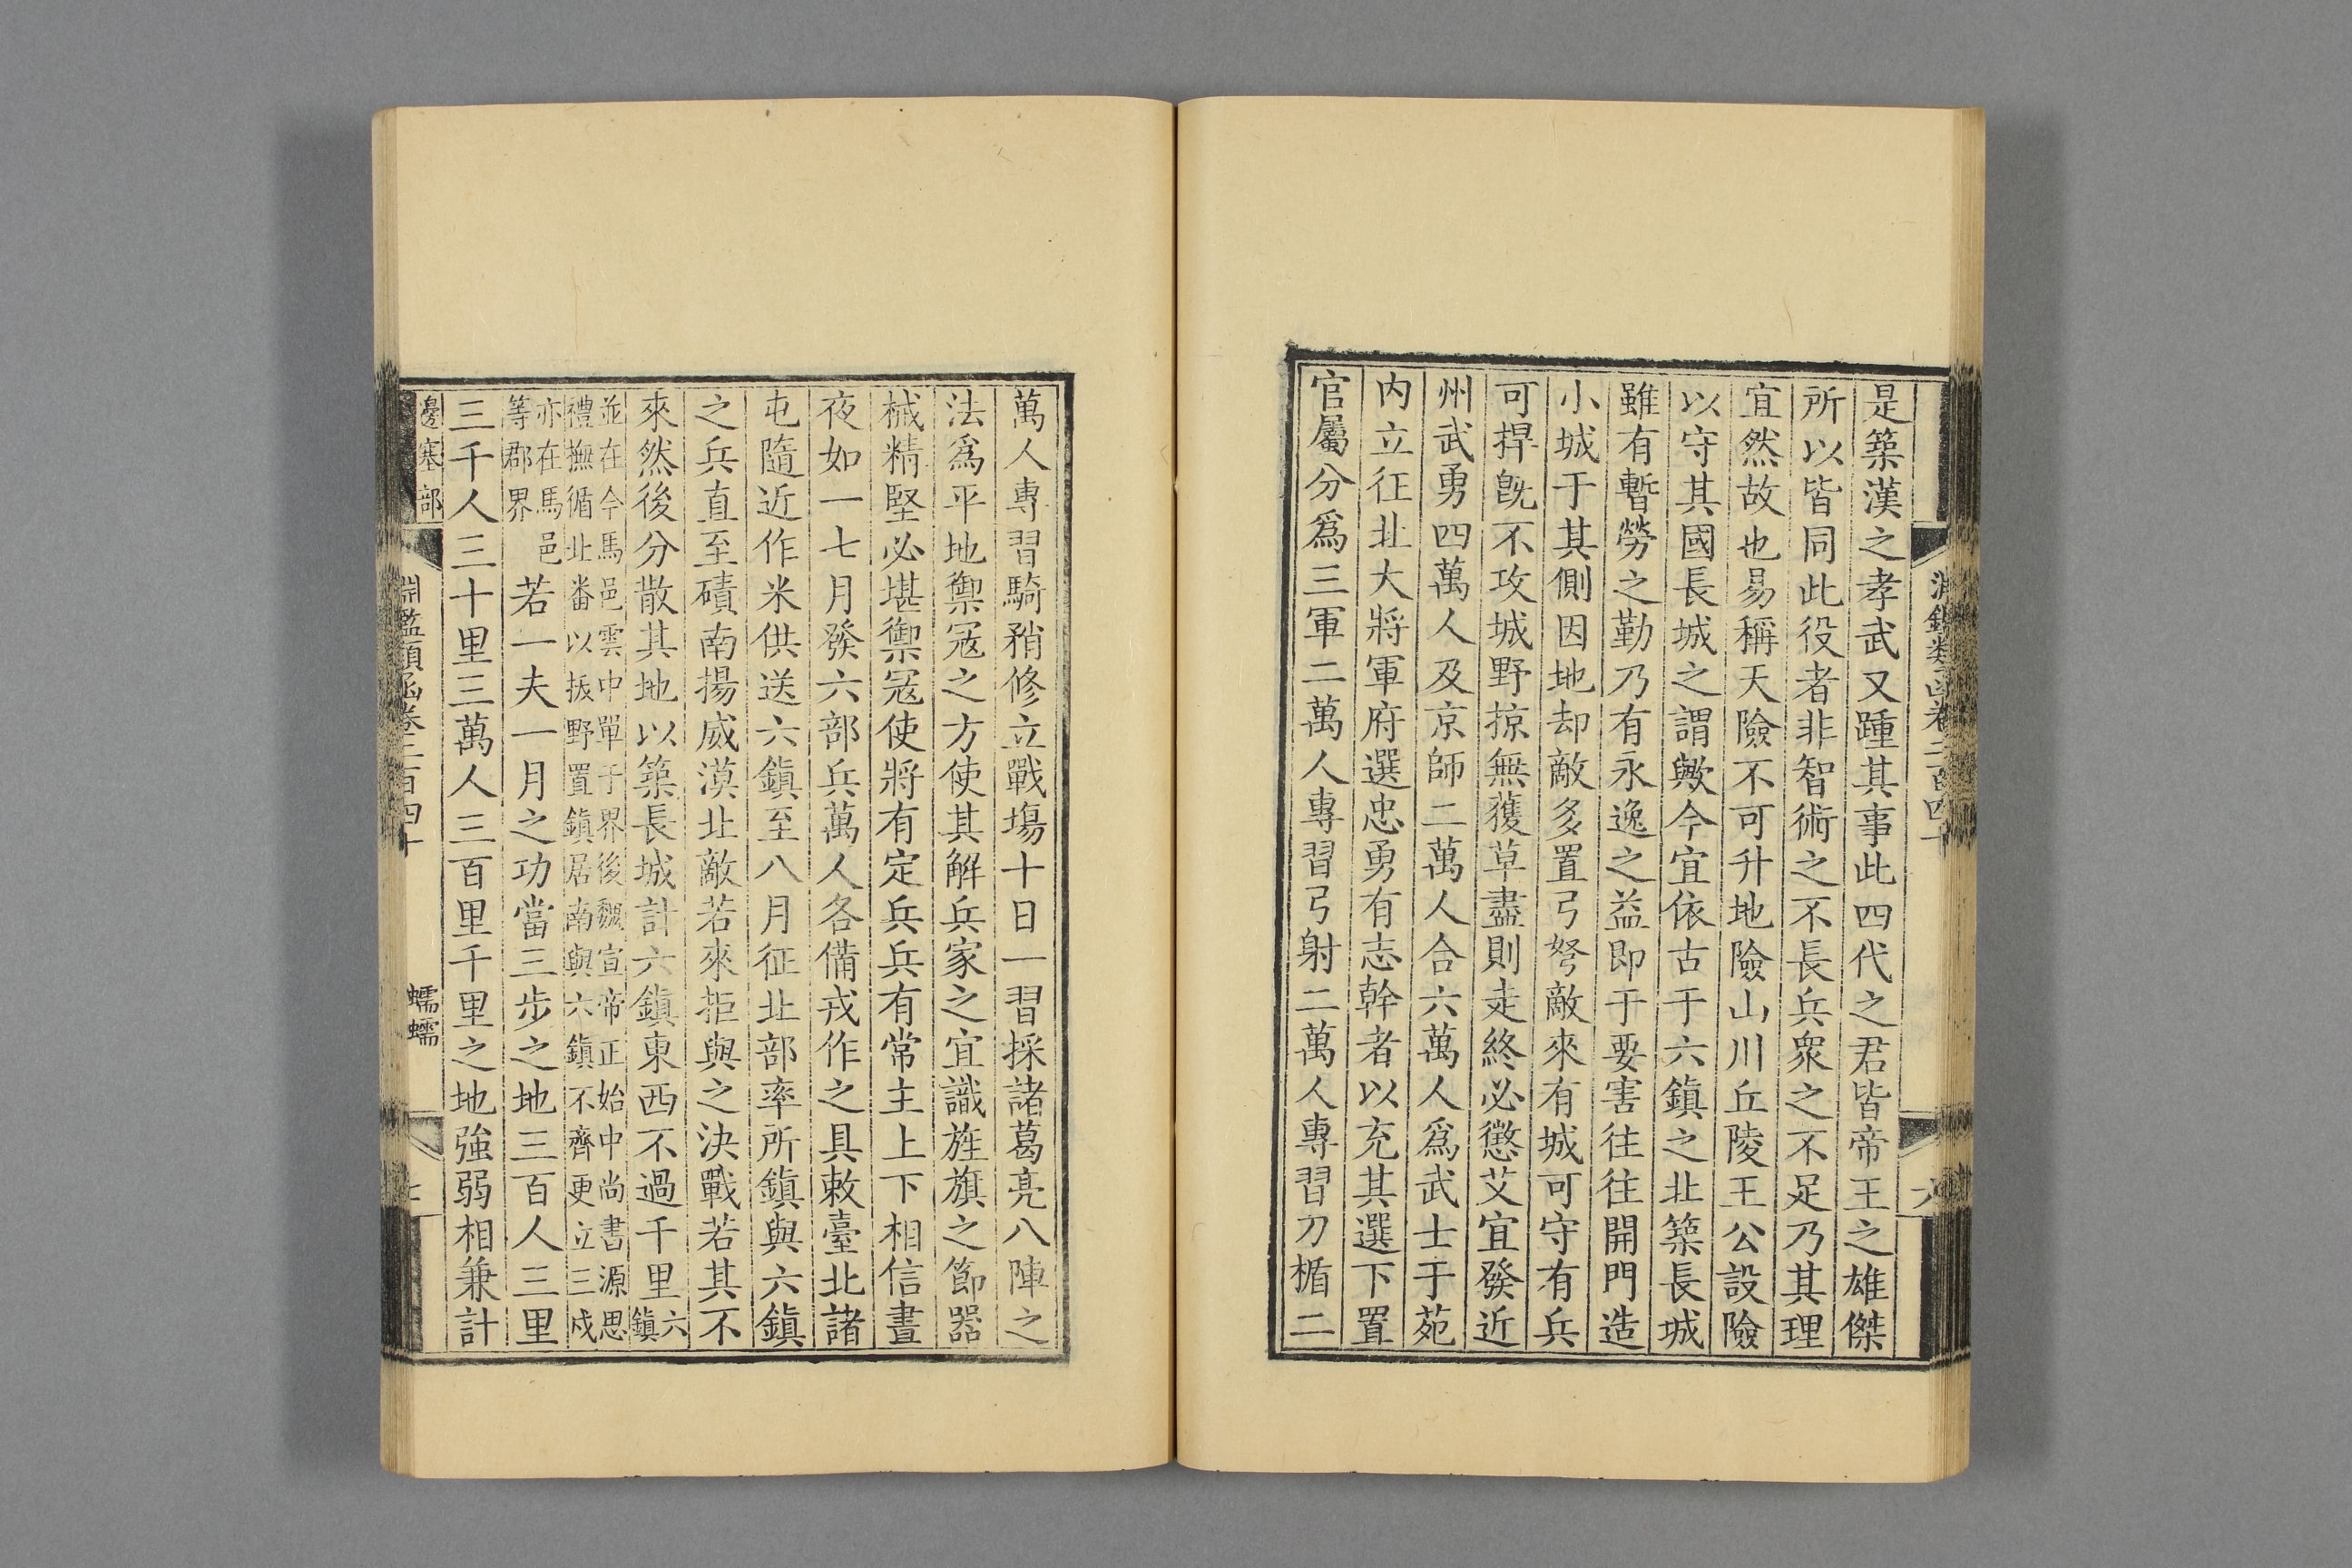 是築漢之孝武又踵其事此四代之君皆帝王之雄傑
所以皆同此役者非智術之不長兵衆之不足乃其理
宜然故也易稱天險不可升地險山川丘陵王公設險
以守其國長城之謂歟今宜依古于六鎮之北築長城
雖有暫勞之勤乃有永逸之益即于要害往往開門造
小城于其側因地却敵多置弓弩敵來有城可守有兵
可捍旣不攻城野掠無獲草盡則走終必懲艾宜發近
州武勇四萬人及京師二萬人合六萬人爲武士于苑
内立征北大將軍府選忠勇有志幹者以充其選下置
官屬分爲三軍二萬人專習弓射二萬人專習刀楯二
萬人專習騎矟修立戰塲十日一習採諸葛亮八陣之
法爲平地禦冦之方使其解兵家之宜識旌旗之節器
械精堅必堪禦冦使將有定兵兵有常主上下相信晝
夜如一七月發六部兵萬人各備戎作之具敕臺北諸
屯隨近作米供送六鎮至八月征北部率所鎮與六鎮
之兵直至磧南揚威漠北敵若來拒與之決戰若其不
來然後分散其地以築長城計六鎮東西不過千里六
鎮
並在今馬邑雲中單于界後魏宣帝正始中尚書源思
禮撫循北畨以㧞野置鎮居南與六鎮不齊更立三戍
亦在馬邑
等郡界
若一夫一月之功當三步之地三百人三里
三千人三十里三萬人三百里千里之地強弱相兼計
邊塞部
淵鑑類函卷二百四十
蠕蠕